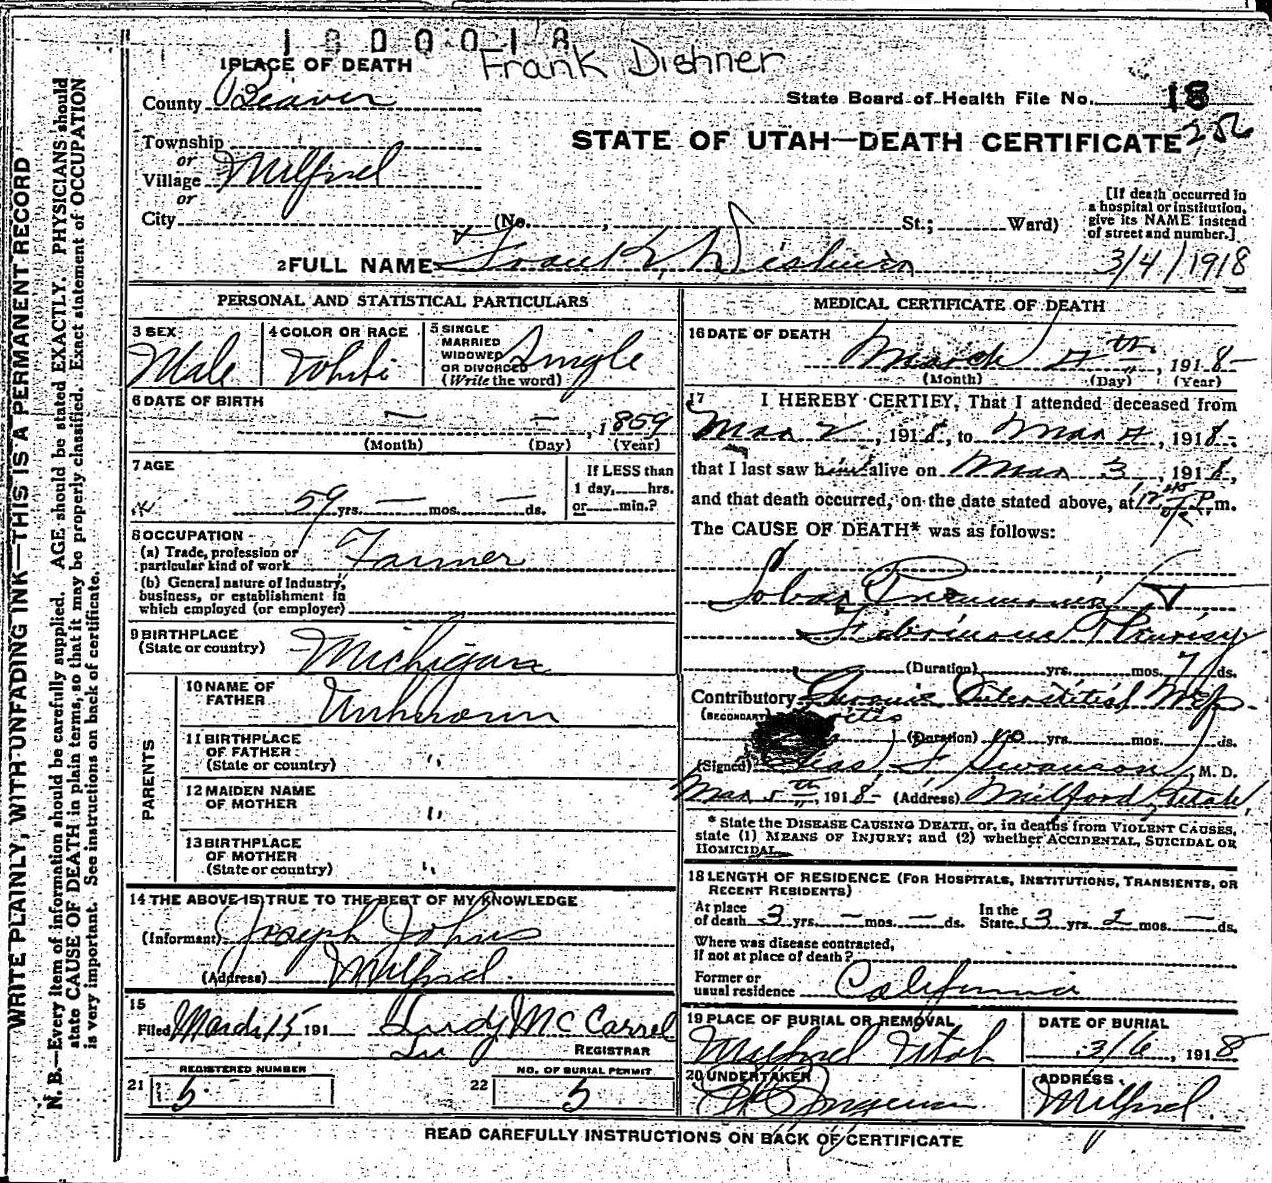 1800018
Frank Dishner
1 PLACE OF DEATH
County Beaver
State Board of Health File No. 18
256
Township
or
Village Milford
or
City (No. , St.; Ward)
STATE OF UTAH—DEATH CERTIFICATE
[If death occurred in
a hospital or institution,
give its NAME instead
of street and number.]
2 FULL NAME Frank Dishner
3/4/1918
PERSONAL AND STATISTICAL PARTICULARS
3 SEX
Male
4 COLOR OR RACE
White
5 SINGLE
MARRIED
WIDOWED
OR DIVORCED
(Write the word)
Single
6 DATE OF BIRTH
— — , 1859
(Month) (Day) (Year)
7 AGE
59 yrs. — mos. — ds.
If LESS than
1 day, hrs.
or min.?
8 OCCUPATION
(a) Trade, profession or
particular kind of work Farmer
(b) General nature of Industry,
business, or establishment in
which employed (or employer)
9 BIRTHPLACE
(State or country) Michigan
PARENTS
10 NAME OF
FATHER Unknown
11 BIRTHPLACE
OF FATHER
(State or country) "
12 MAIDEN NAME
OF MOTHER "
13 BIRTHPLACE
OF MOTHER
(State or country) "
14 THE ABOVE IS TRUE TO THE BEST OF MY KNOWLEDGE
(Informant) Joseph Johns
(Address) Milford
15
Filed March 15 191 McCarrel
REGISTRAR
21 REGISTERED NUMBER
5
22 NO. OF BURIAL PERMIT
5
MEDICAL CERTIFICATE OF DEATH
16 DATE OF DEATH
March 4th , 1918
(Month) (Day) (Year)
17 I HEREBY CERTIFY, That I attended deceased from
Mar 2 , 1918, to Mar 4 , 1918,
that I last saw him alive on Mar 3 , 1918,
and that death occurred, on the date stated above, at 12 45 P. m.
The CAUSE OF DEATH* was as follows:
Lobar Pneumonia
Fibrinous Pleurisy
(Duration) yrs. mos. 7 ds.
Contributory Chronic Interstitial Neph
(SECONDARY) ritis
(Duration) yrs. mos. ds.
(Signed) F Swanson, M. D.
Mar 5th, 1918 (Address) Milford, Utah
* State the DISEASE CAUSING DEATH, or, in deaths from VIOLENT CAUSES,
state (1) MEANS OF INJURY; and (2) whether ACCIDENTAL, SUICIDAL OR
HOMICIDAL
18 LENGTH OF RESIDENCE (FOR HOSPITALS, INSTITUTIONS, TRANSIENTS, OR
RECENT RESIDENTS)
At place
of death 3 yrs. — mos. — ds.
In the
State 3 yrs. 2 mos. — ds.
Where was disease contracted,
if not at place of death?
Former or
usual residence California
19 PLACE OF BURIAL OR REMOVAL
Milford Utah
DATE OF BURIAL
3/6 , 1918
20 UNDERTAKER
ADDRESS
Milford
READ CAREFULLY INSTRUCTIONS ON BACK OF CERTIFICATE
WRITE PLAINLY, WITH UNFADING INK—THIS IS A PERMANENT RECORD
N. B.—Every item of information should be carefully supplied. AGE should be stated EXACTLY. PHYSICIANS should
state CAUSE OF DEATH in plain terms, so that it may be properly classified. Exact statement of OCCUPATION
is very important. See instructions on back of certificate.